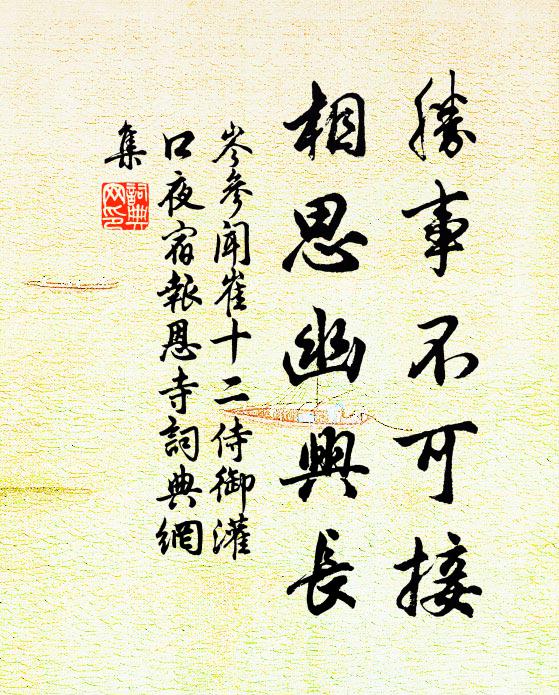 勝事不可接
相思幽興長
岑參聞崔十二侍御灌
口夜宿報恩寺詞典網
集
詞典
网印